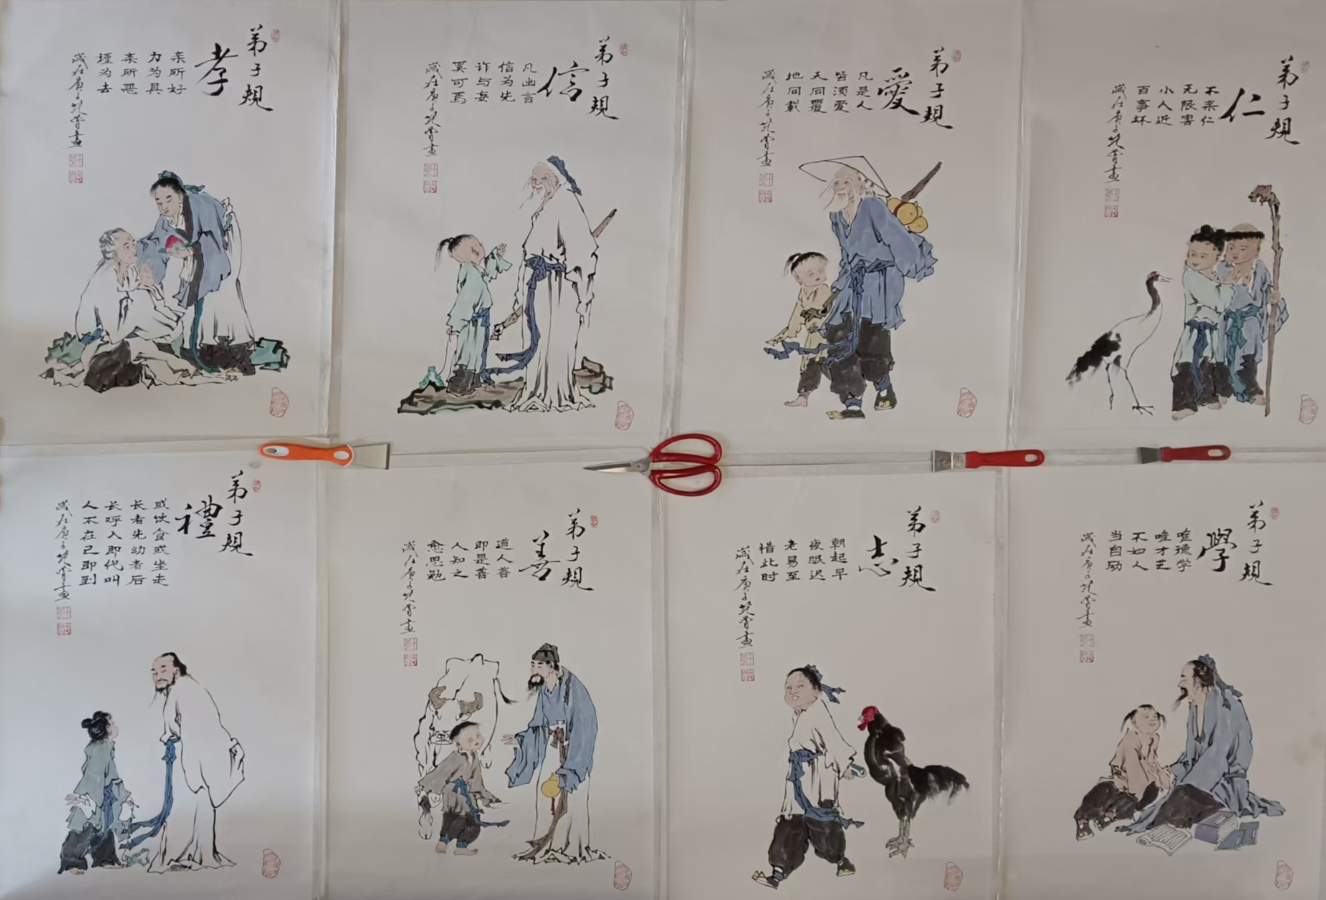 弟子規
孝
亲所好
力为具
亲所恶
谨为去
歲在庚子
弟子規
信
凡出言
信为先
诈与妄
奚可焉
歲在庚子
弟子規
愛
凡是人
皆须爱
天同覆
地同載
歲在庚子
弟子規
仁
不亲仁
无限害
小人进
百事坏
歲在庚子
弟子規
禮
或饮食或坐走
长者先幼者后
长呼人即代叫
人不在己即到
歲在庚子
弟子規
善
道人善
即是善
人知之
愈思勉
歲在庚子
弟子規
志
朝起早
夜眠迟
老易至
惜此时
歲在庚子
弟子規
學
唯德学
唯才艺
不如人
当自励
歲在庚子